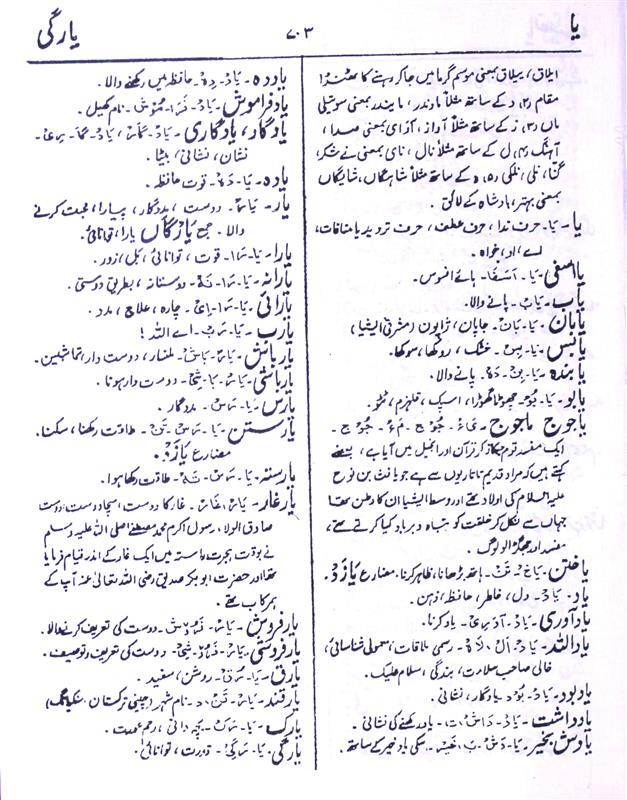 یا
۷۰۳
یارگی
ایلاق، ییلاق بمعنی موسم گرما میں جا کر رہنے کا ٹھنڈا
مقام (۲) د کے ساتھ مثلاً مادندر، مایندر بمعنی سوتیلی
ماں (۳) ز کے ساتھ مثلاً آواز، آزای بمعنی صدا،
آہنگ (۴) ل کے ساتھ مثلاً نال، نای بمعنی نے شکر،
گنا، نلی، نلکی (۵) ہ کے ساتھ مثلاً شاہگاں، شائیگاں
بمعنی بہتر، بادشاہ کے لائق۔
یا۔ یَا۔ حرف ندا، حرف عطف، حرف تردید یا منافات،
اے، اور، خواہ۔
یا اسفی۔ یَا۔ اَسَفَا۔ ہائے افسوس۔
یاب۔ یَابْ۔ پانے والا۔
یابان۔ یَا۔ بَانْ۔ جاپان، ژاپون (مشرقی ایشیا)
یابس۔ یَا۔ بِسْ۔ خشک، روکھا، سوکھا۔
یابندہ۔ یَا۔ بِنْ۔ دَہْ۔ پانے والا۔
یابو۔ یَا۔ بُوْ۔ چھوٹا گھوڑا، اسپک، ٹٹو۔
یاجوج ماجوج۔ یَاءْ۔ جُوْج۔ مَاءْ۔ جُوْج۔
ایک مفسد قوم جنکا ذکر قرآن اور انجیل میں آیا ہے، بعضے
کہتے ہیں کہ مراد قدیم تاتاریوں سے ہے جو یافث بن نوح
علیہ السلام کی اولاد تھے اور وسط ایشیا ان کا وطن تھا
جہاں سے نکل کر خلقت کو تباہ و برباد کیا کرتے تھے،
مفسد اور جھگڑالو لوگ۔
یاختن۔ یَاخْ۔ تَنْ۔ ہاتھ بڑھانا، ظاہر کرنا۔ مضارع یَازَدْ۔
یاد۔ یَادْ۔ دل، خاطر، حافظہ، ذہن۔
یاد آوری۔ یَادْ۔ آوَرِیْ۔ یاد کرنا۔
یاد اللہ۔ یَادُ۔ اَلْ۔ لَاہْ۔ رسمی ملاقات، معمولی شناسائی،
خالی صاحب سلامت، بندگی، سلام علیک۔
یادبود۔ یَادْ۔ بُوْد۔ یادگار، نشانی۔
یادداشت۔ یَادْ۔ دَاشْت۔ یاد رکھنے کی نشانی۔
یادش بخیر۔ یَا۔ دَشْ۔ بَ۔ خَیْر۔ اسکی یاد خیر کے ساتھ۔
یاددہ۔ یَادْ۔ دِہْ۔ حافظہ میں رکھنے والا۔
یاد فراموش۔ یَادْ۔ فَرَا۔ مُوْش۔ نام کھیل۔
یادگار، یادگاری۔ یَادْ۔ گَارْ، یَادْ۔ گَا۔ رِیْ۔
نشان، نشانی، بیٹا۔
یادہ۔ یَا۔ دَہْ۔ قوت حافظہ۔
یار۔ یَارْ۔ دوست، مددگار، پیارا، محبت کرنے
والا۔ جمع یارگاں یارا، توانائی۔
یارا۔ یَا۔ رَا۔ قوت، توانائی، بل، زور۔
یارانہ۔ یَا۔ رَا۔ نَہْ۔ دوستانہ، بطریق دوستی۔
یارائی۔ یَا۔ رَا۔ اِیْ۔ چارہ، علاج، مدد۔
یارب۔ یَا۔ رَبْ۔ اے اللہ!
یارباش۔ یَارْ۔ بَاشْ۔ ملنسار، دوست دار، تماشبین۔
یارباشی۔ یَارْ۔ بَا۔ شِیْ۔ دوست دار ہونا۔
یارس۔ یَا۔ رَسْ۔ مددگار۔
یارستن۔ یَا۔ رَسْ۔ تَنْ۔ طاقت رکھنا، سکنا۔
مضارع یَازَدْ۔
یارستہ۔ یَا۔ رَسْ۔ تَہْ۔ طاقت رکھا ہوا۔
یارغار۔ یَارْ۔ غَارْ۔ غار کا دوست، سچا دوست، دوست
صادق الولا، رسول اکرم محمد مصطفےٰ صلی اللہ علیہ وسلم
نے بوقت ہجرت راستہ میں ایک غار کے اندر قیام فرمایا
تھا اور حضرت ابوبکر صدیق رضی اللہ تعالیٰ عنہ آپ کے
ہمرکاب تھے۔
یارفروش۔ یَارْ۔ فَرُوْش۔ دوست کی تعریف کرنے والا۔
یارفروشی۔ یَارْ۔ فَرُوْ۔ شِیْ۔ دوست کی تعریف و توصیف۔
یارق۔ یَا۔ رَقْ۔ روشن، سفید۔
یارقند۔ یَارْ۔ قَنْ۔ د۔ نام شہر (چینی ترکستان، سنکیانگ)
یارک۔ یَا۔ رَکْ۔ بچہ دانی، رحم عورت۔
یارگی۔ یَا۔ رَگِیْ۔ قدرت، توانائی۔